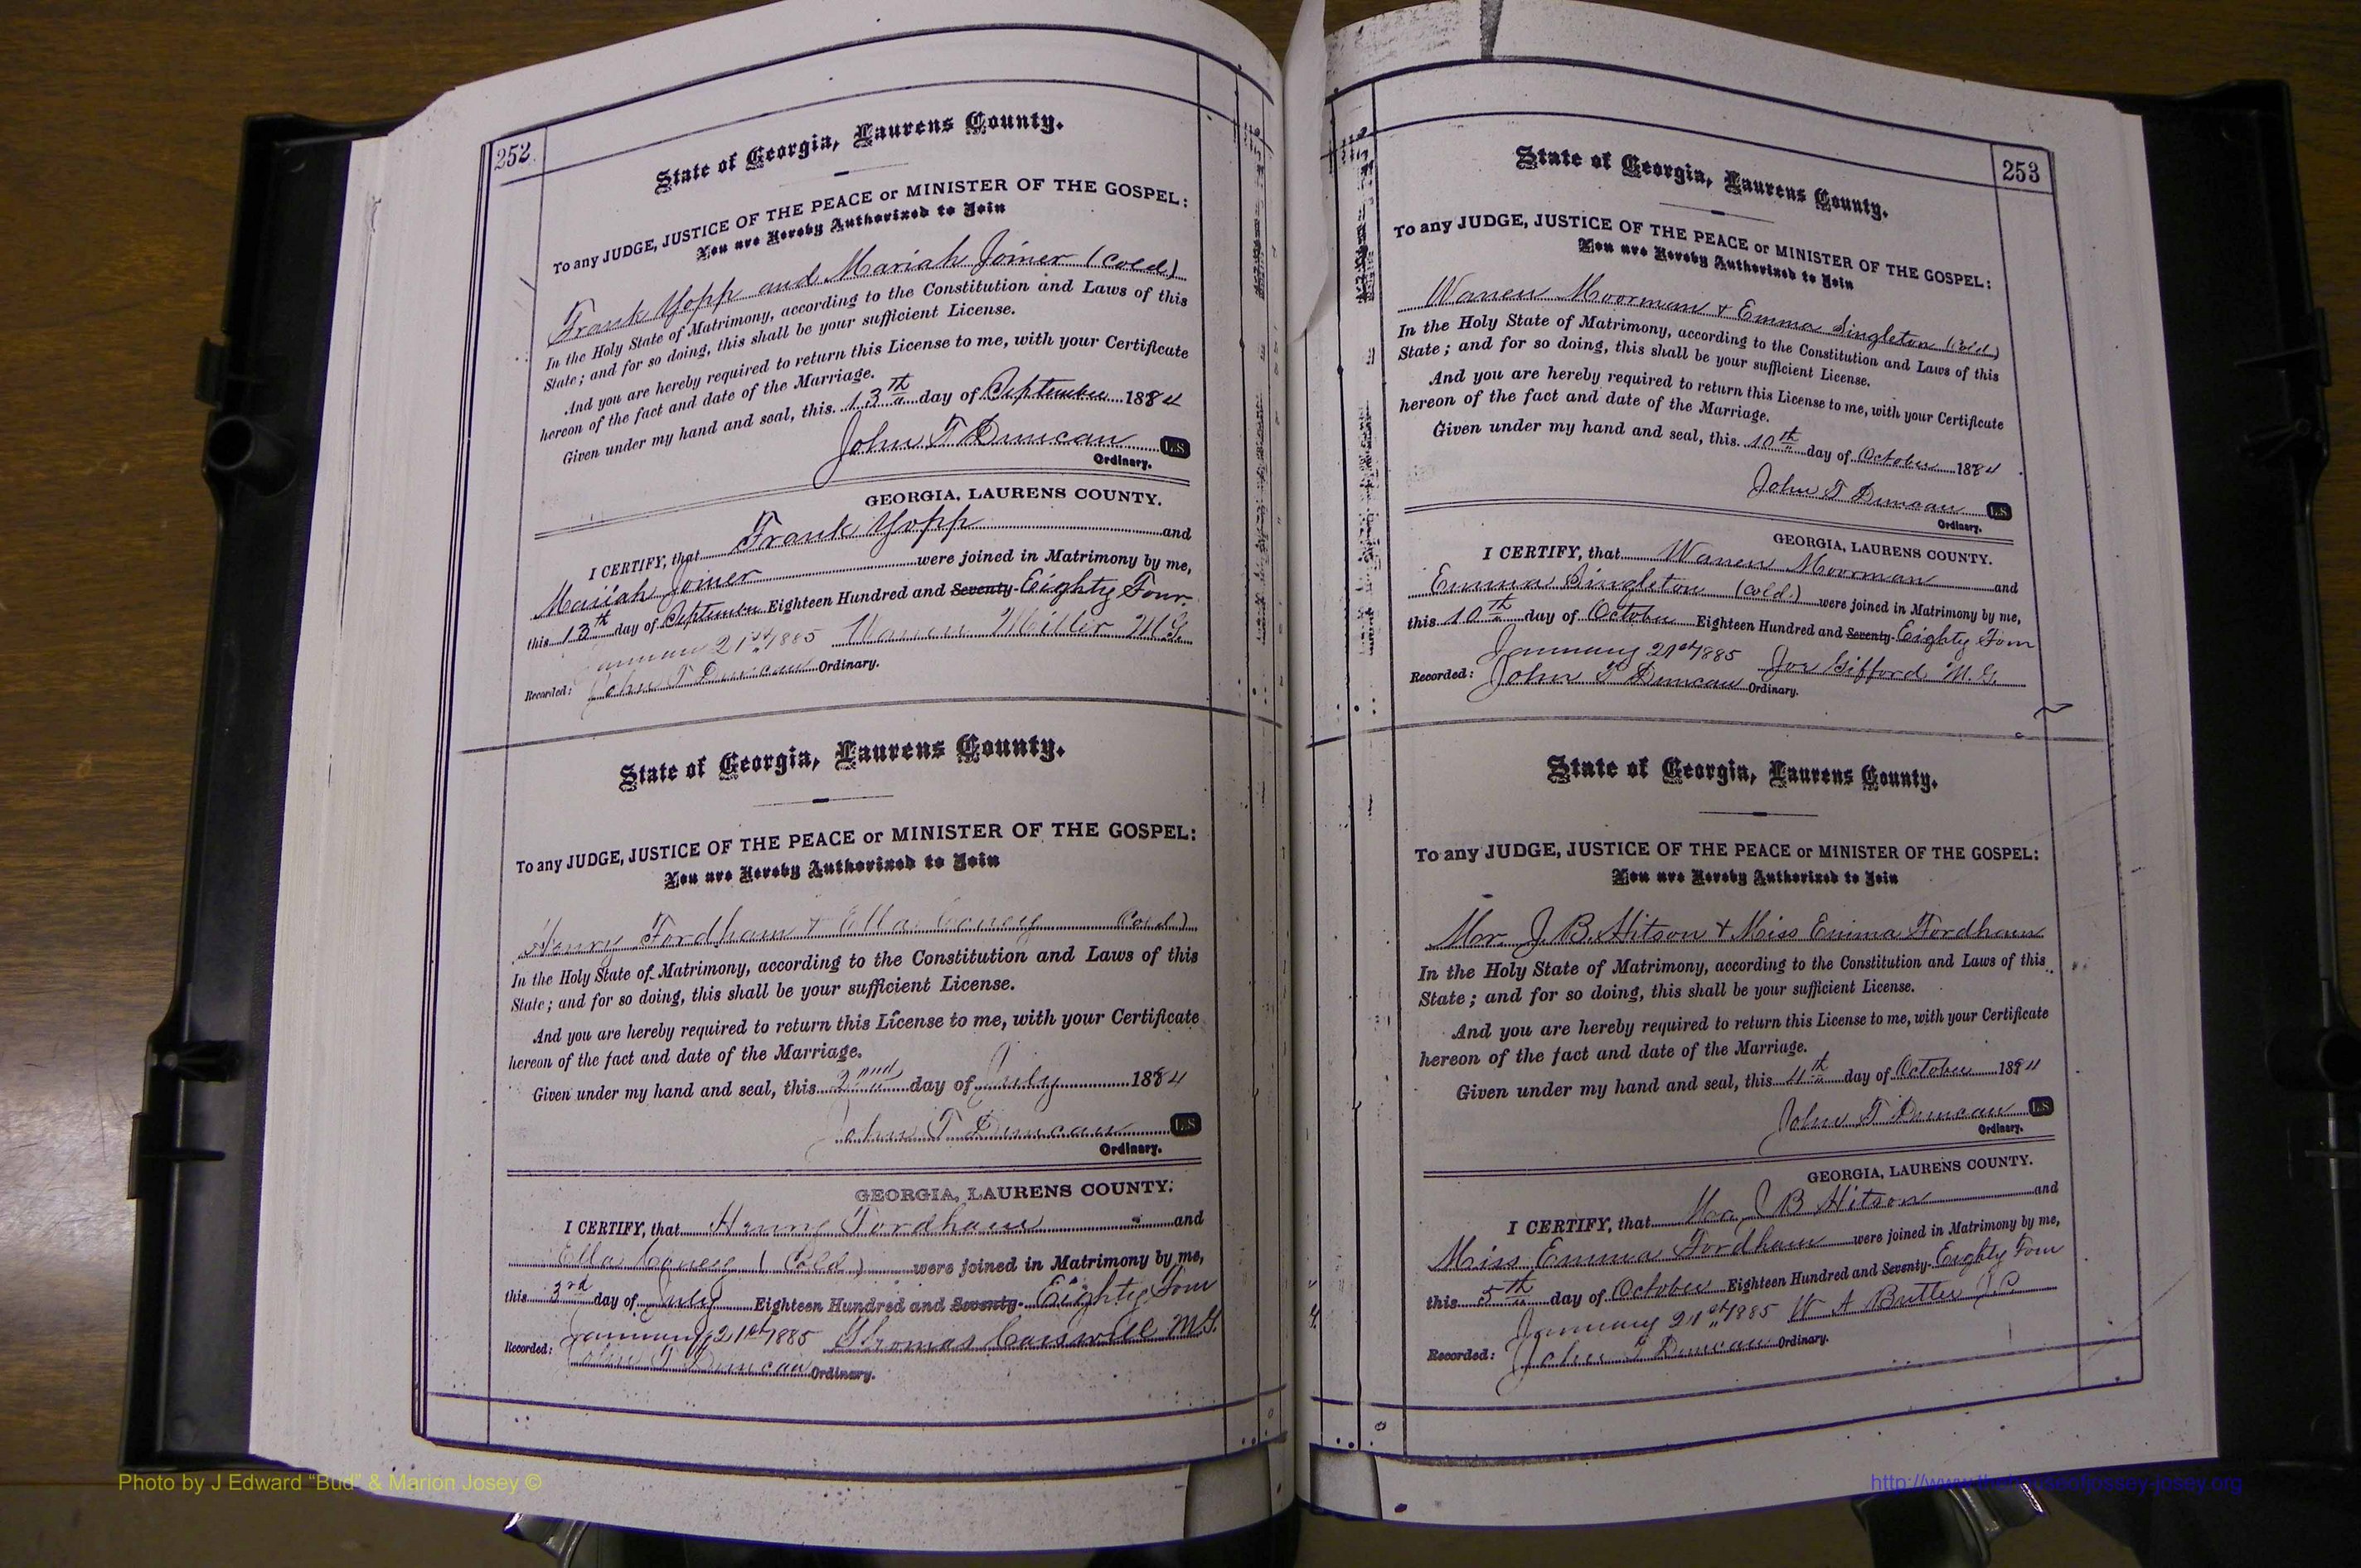 252
State of Georgia, Laurens County.
To any JUDGE, JUSTICE OF THE PEACE or MINISTER OF THE GOSPEL:
You are Hereby Authorized to Join
Frank Yopp and Mariah Joiner (Cold)
In the Holy State of Matrimony, according to the Constitution and Laws of this
State; and for so doing, this shall be your sufficient License.
And you are hereby required to return this License to me, with your Certificate
hereon of the fact and date of the Marriage.
Given under my hand and seal, this 13th day of September 1884
John T Duncan L.S
Ordinary.
GEORGIA, LAURENS COUNTY.
I CERTIFY, that Frank Yopp and
Mariah Joiner were joined in Matrimony by me,
this 13th day of September Eighteen Hundred and Seventy- Eighty Four.
January 21st 1885 Warren Miller M.G.
Recorded: John T Duncan Ordinary.
State of Georgia, Laurens County.
To any JUDGE, JUSTICE OF THE PEACE or MINISTER OF THE GOSPEL:
You are Hereby Authorized to Join
Henry Fordham + Ella Coney (Cold)
In the Holy State of Matrimony, according to the Constitution and Laws of this
State; and for so doing, this shall be your sufficient License.
And you are hereby required to return this License to me, with your Certificate
hereon of the fact and date of the Marriage.
Given under my hand and seal, this 2nd day of July 1884
John T Duncan L.S
Ordinary.
GEORGIA, LAURENS COUNTY.
I CERTIFY, that Henry Fordham and
Ella Coney (Cold) were joined in Matrimony by me,
this 3rd day of July Eighteen Hundred and Seventy- Eighty Four
January 21st 1885 Thomas Carswell M.G.
Recorded: John T Duncan Ordinary.
253
State of Georgia, Laurens County.
To any JUDGE, JUSTICE OF THE PEACE or MINISTER OF THE GOSPEL:
You are Hereby Authorized to Join
Warren Moorman + Emma Singleton (Cold)
In the Holy State of Matrimony, according to the Constitution and Laws of this
State; and for so doing, this shall be your sufficient License.
And you are hereby required to return this License to me, with your Certificate
hereon of the fact and date of the Marriage.
Given under my hand and seal, this 10th day of October 1884
John T Duncan L.S.
Ordinary.
GEORGIA, LAURENS COUNTY.
I CERTIFY, that Warren Moorman and
Emma Singleton (Cold.) were joined in Matrimony by me,
this 10th day of October Eighteen Hundred and Seventy- Eighty Four
January 21st 1885 Joe Gifford M.G.
Recorded: John T Duncan Ordinary.
State of Georgia, Laurens County.
To any JUDGE, JUSTICE OF THE PEACE or MINISTER OF THE GOSPEL:
You are Hereby Authorized to Join
Mr. J. B. Hitson + Miss Emma Fordham
In the Holy State of Matrimony, according to the Constitution and Laws of this
State; and for so doing, this shall be your sufficient License.
And you are hereby required to return this License to me, with your Certificate
hereon of the fact and date of the Marriage.
Given under my hand and seal, this 4th day of October 1884
John T Duncan L.S
Ordinary.
GEORGIA, LAURENS COUNTY.
I CERTIFY, that Mr. J B Hitson and
Miss Emma Fordham were joined in Matrimony by me,
this 5th day of October Eighteen Hundred and Seventy- Eighty Four
January 21st 1885 W A Butler J.P.
Recorded: John T Duncan Ordinary.
Photo by J Edward "Bud" & Marion Josey ©